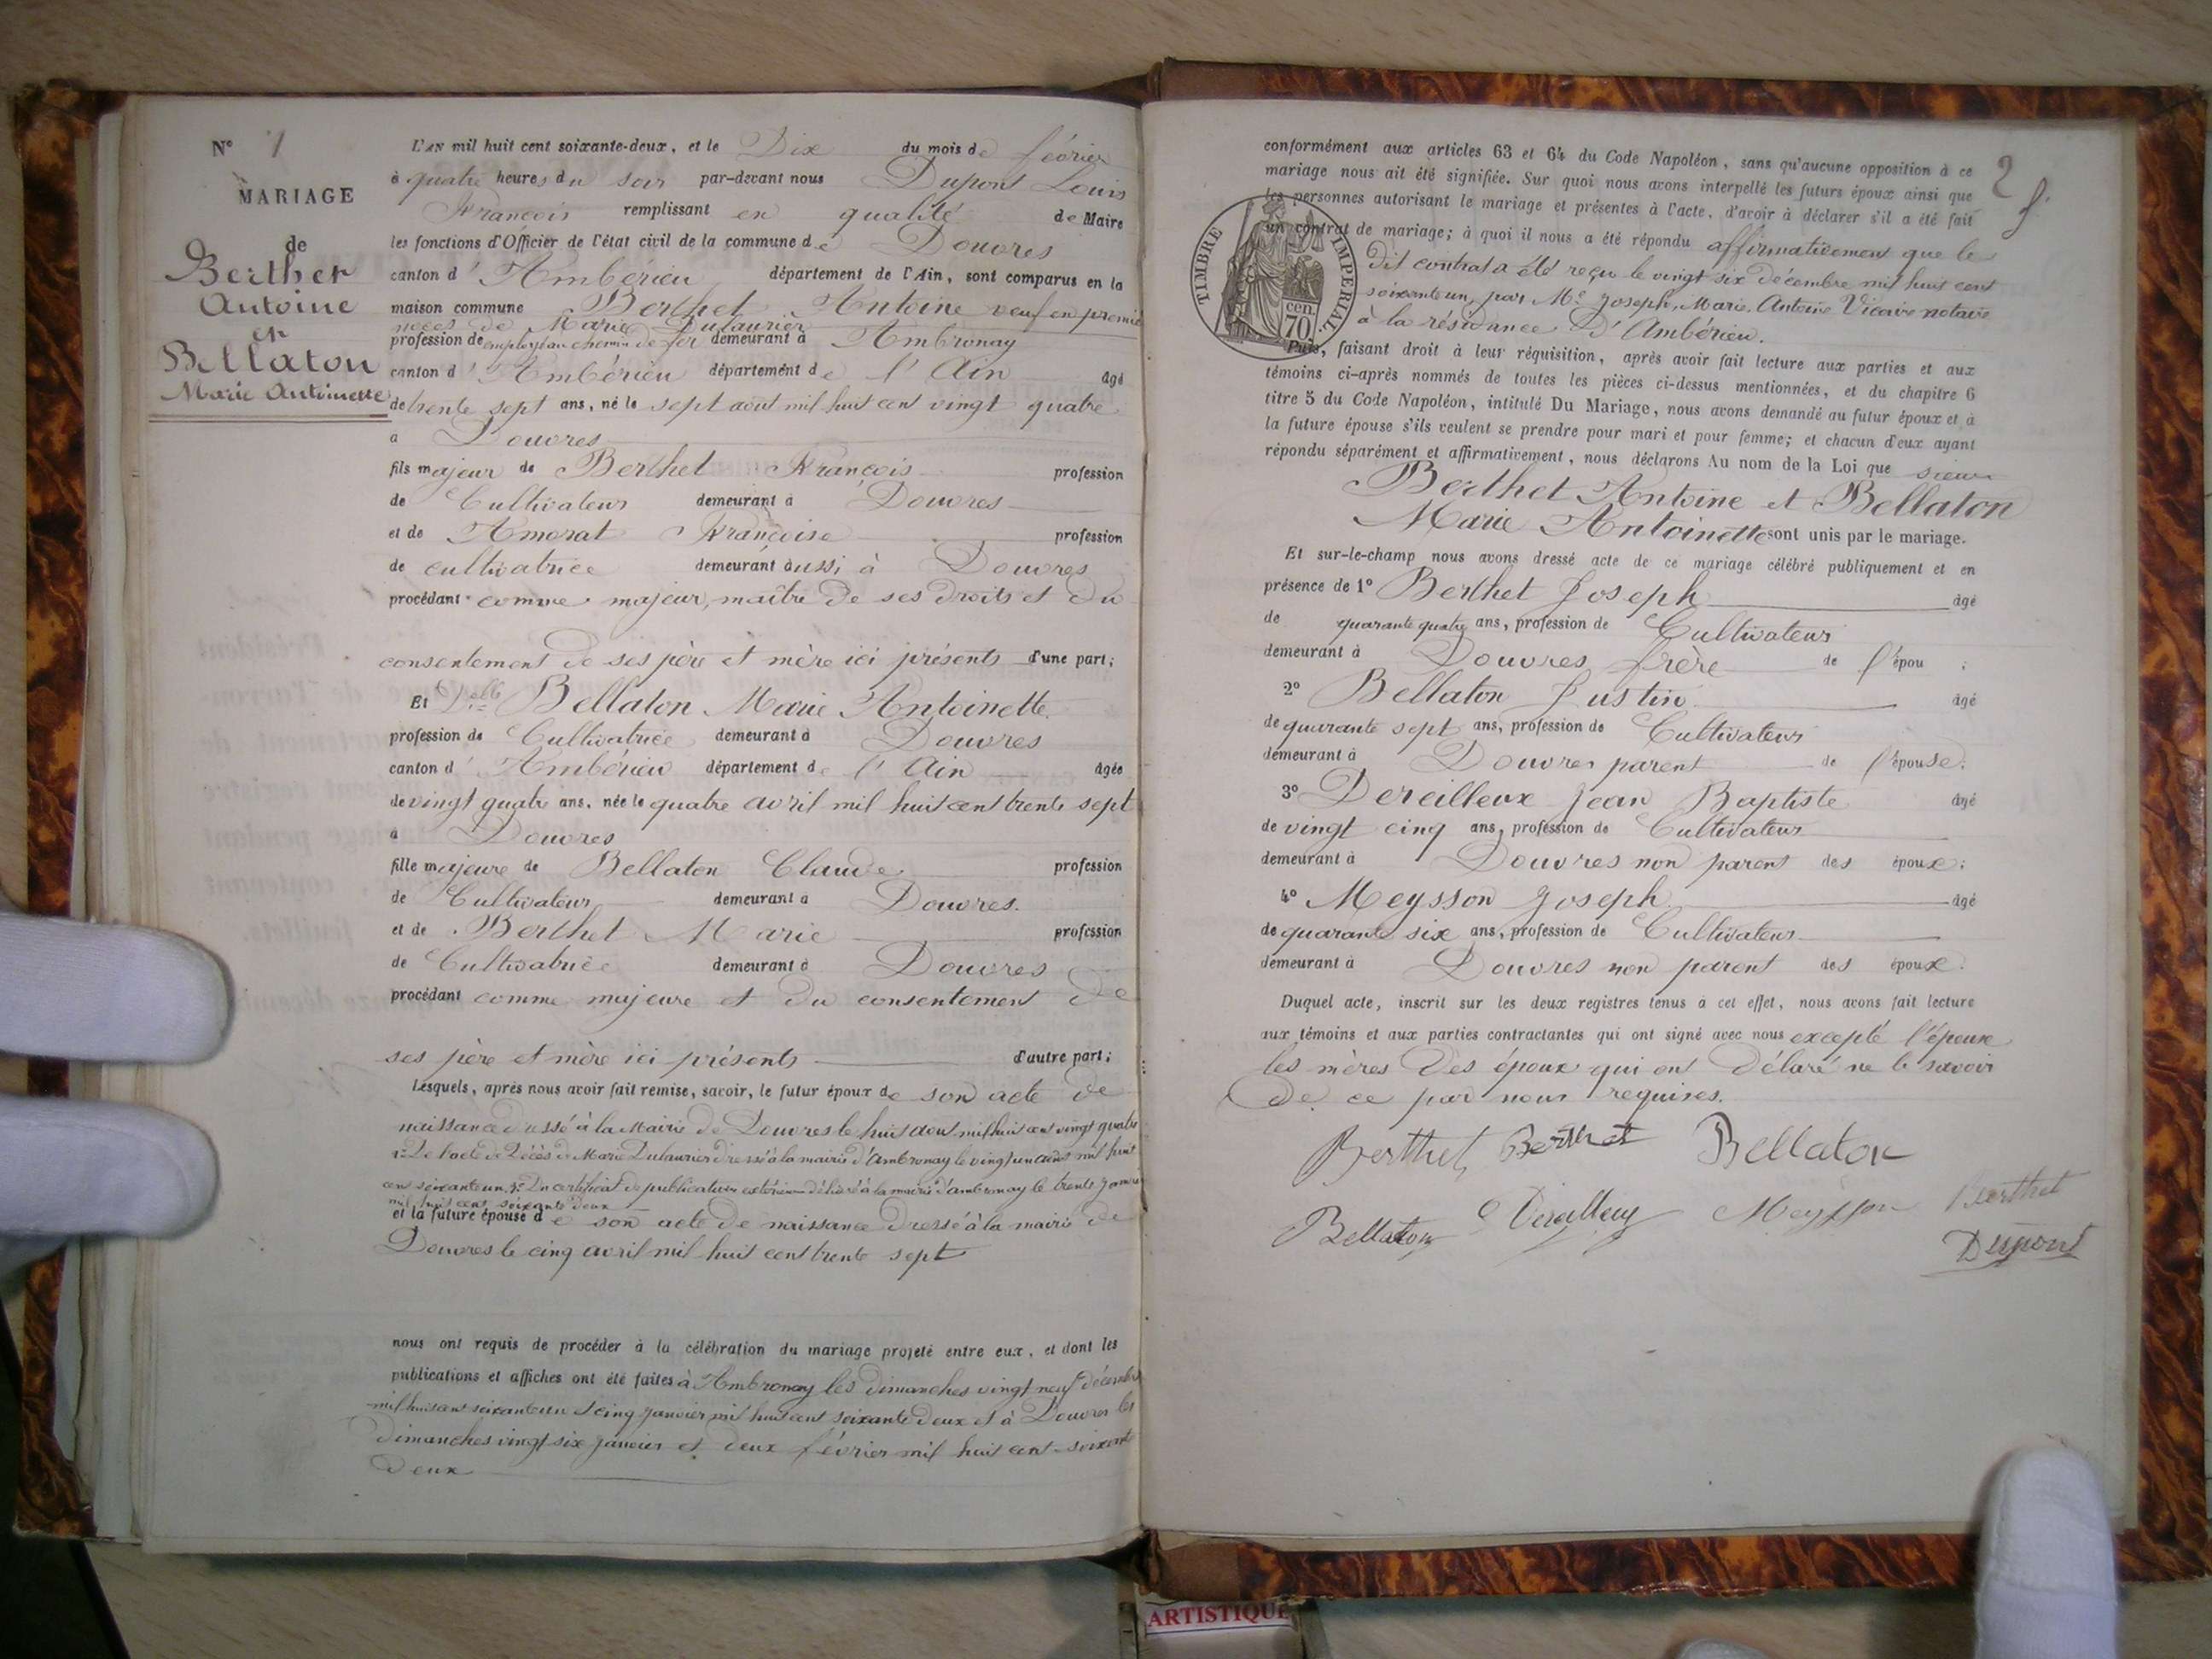 N° 1
MARIAGE
de
Berthet
Antoine
et
Bellaton
Marie Antoinette
L'AN mil huit cent soixante-deux, et le Dix du mois de février
à quatre heures du soir par-devant nous Dupont Louis
François remplissant en qualité de Maire
les fonctions d'Officier de l'état civil de la commune de Douvres
canton d'Ambérieu département de l'Ain, sont comparus en la
maison commune Berthet Antoine veuf en premiè
noces de Marie Dulaurier
profession de employé au chemin de fer demeurant à Ambronay
canton d'Ambérieu département de l'Ain âgé
de trente sept ans, né le sept aout mil huit cent vingt quatre
à Douvres
fils majeur de Berthet François profession
de Cultivateur demeurant à Douvres
et de Amorat Françoise profession
de cultivatrice demeurant aussi à Douvres
procédant comme majeur, maître de ses droits et du
consentement de ses père et mère ici présents d'une part;
Et Delle Bellaton Marie Antoinette
profession de Cultivatrice demeurant à Douvres
canton d'Ambérieu département de l'Ain âgée
de vingt quatre ans, née le quatre avril mil huit cent trente sept
à Douvres
fille majeure de Bellaton Claude profession
de Cultivateur demeurant à Douvres.
et de Berthet Marie profession
de Cultivatrice demeurant à Douvres
procédant comme majeure et du consentement de
ses père et mère ici présents d'autre part;
Lesquels, après nous avoir fait remise, savoir, le futur époux de son acte de
naissance dressé à la Mairie de Douvres le huit aout mil huit cent vingt quatre
2° De l'acte de Décès de Marie Dulaurier dressé à la mairie d'Ambronay le vingt un août mil huit
cent soixante un. 3° Du certificat de publication extérieure délivré à la mairie d'ambronay le trente janvier
mil huit cent soixante deux
et la future épouse de son acte de naissance dressé à la mairie de
Douvres le cinq avril mil huit cent trente sept
nous ont requis de procéder à la célébration du mariage projeté entre eux, et dont les
publications et affiches ont été faites à Ambronay les dimanches vingt neuf décembre
mil huit cent soixante un et cinq janvier mil huit cent soixante deux et à Douvres les
dimanches vingt six janvier et deux février mil huit cent soixante
deux
2
conformément aux articles 63 et 64 du Code Napoléon, sans qu'aucune opposition à ce
mariage nous ait été signifiée. Sur quoi nous avons interpellé les futurs époux ainsi que
les personnes autorisant le mariage et présentes à l'acte, d'avoir à déclarer s'il a été fait
un contrat de mariage; à quoi il nous a été répondu affirmativement que le
dit contrat a été reçu le vingt six décembre mil huit cent
soixante un, par Me Joseph, Marie, Antoine Vicaire notaire
à la résidance d'Ambérieu.
TIMBRE IMPERIAL.
cen.
70
Puis, faisant droit à leur réquisition, après avoir fait lecture aux parties et aux
témoins ci-après nommés de toutes les pièces ci-dessus mentionnées, et du chapitre 6
titre 5 du Code Napoléon, intitulé Du Mariage, nous avons demandé au futur époux et à
la future épouse s'ils veulent se prendre pour mari et pour femme; et chacun d'eux ayant
répondu séparément et affirmativement, nous déclarons Au nom de la Loi que sieur
Berthet Antoine et Bellaton
Marie Antoinette sont unis par le mariage.
Et sur-le-champ nous avons dressé acte de ce mariage célébré publiquement et en
présence de 1° Berthet Joseph âgé
de quarante quatre ans, profession de Cultivateur
demeurant à Douvres frère de l'épou ;
2° Bellaton Justin âgé
de quarante sept ans, profession de Cultivateur
demeurant à Douvres parent de l'épouse;
3° Dereilleux Jean Baptiste âgé
de vingt cinq ans, profession de Cultivateur
demeurant à Douvres non parent des époux;
4° Meysson Joseph âgé
de quarante six ans, profession de Cultivateur
demeurant à Douvres non parent des époux.
Duquel acte, inscrit sur les deux registres tenus à cet effet, nous avons fait lecture
aux témoins et aux parties contractantes qui ont signé avec nous excepté l'épouse
les mères des époux qui ont déclaré ne le savoir
de ce par nous requises.
Berthet Berthet Bellaton
Bellaton Dereilleux Meysson Berthet
Dupont
ARTISTIQUE